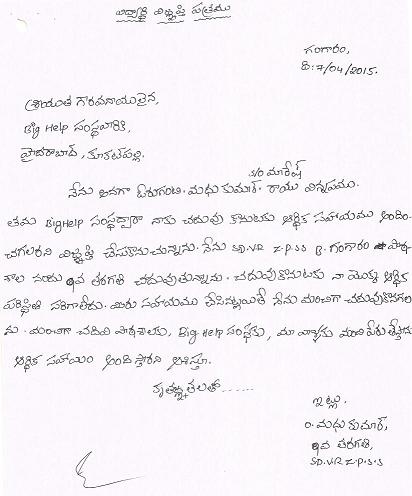 విద్యార్థి విజ్ఞప్తి పత్రము
గంగారం,
ది: 7/04/2015.
శ్రీయుత గౌరవనీయులైన,
Big Help సంస్థవారికి,
హైదరాబాద్, కూకట్‌పల్లి.
S/O మారేష్
నేను అనగా ఓరుగంటి. మధు కుమార్. రాయు విన్నపము.
తమ BigHelp సంస్థద్వారా నాకు చదువు కొనుటకు ఆర్థిక సహాయము అందిం-
చగలరని విజ్ఞప్తి చేసుకొనుచున్నాను. నేను SD.VR Z.P.S.S B. గంగారం పాఠ-
శాల నందు తరగతి చదువుతున్నాను. చదువుకొనుటకు నా యొక్క ఆర్థిక
పరిస్థితి సరిగాలేదు. మీరు సహాయము చేసినట్లయితే నేను మంచిగా చదువుకొనగల-
ను. మంచిగా చదివి పాఠశాలకు, Big Help సంస్థకు, మా మంచి పేరు తెస్తాను
ఆర్థిక సహాయం అందిస్తారని ఆశిస్తూ.
కృతజ్ఞతలతో......
ఇట్లు.
ఓ. మధు కుమార్,
తరగతి,
SD.VR Z.P.S.S